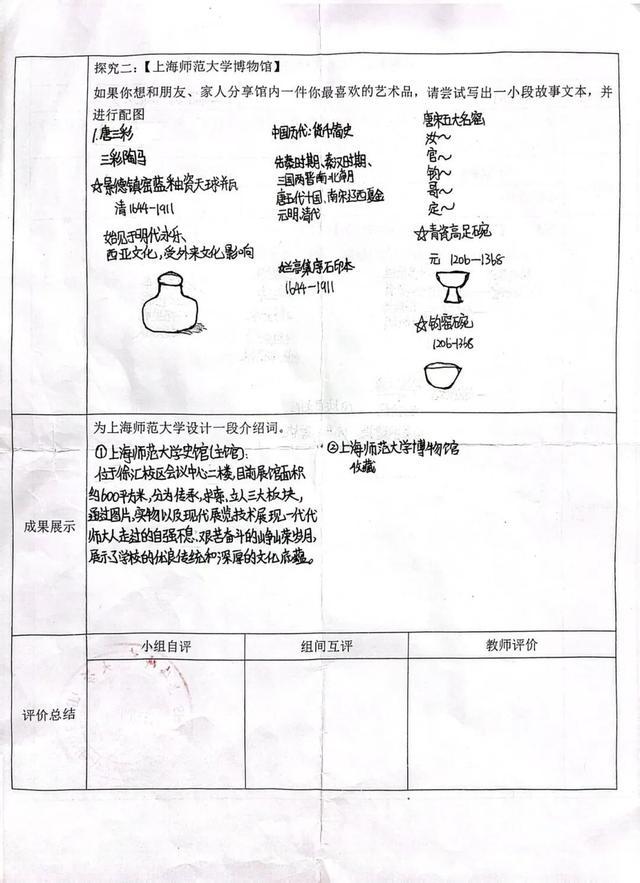 探究二：【上海师范大学博物馆】
如果你想和朋友、家人分享馆内一件你最喜欢的艺术品，请尝试写出一小段故事文本，并
进行配图
1.唐三彩
三彩陶马
☆景德镇窑蓝釉瓷天球瓶
清 1644-1911
始见于明代永乐、
西亚文化，受外来文化影响
中国历代货币简史
先秦时期、秦汉时期、
三国两晋南北朝
唐五代十国、南宋辽西夏金
元明清代
兰亭集序石印本
1644-1911
唐宋五大名窑
汝～
官～
钧～
哥～
定～
☆青瓷高足碗
元 1206-1368
☆钧窑碗
1206-1368
成果展示
为上海师范大学设计一段介绍词。
①上海师范大学史馆(主馆)：
位于徐汇校区会议中心二楼，目前展馆面积
约600平方米，分为传承，求索，立人三大板块，
通过图片，实物以及现代展览技术展现一代代
师大人走过的自强不息、艰苦奋斗的峥嵘岁月，
展示了学校的优良传统和深厚的文化底蕴。
②上海师范大学博物馆
收藏
评价总结
小组自评
组间互评
教师评价